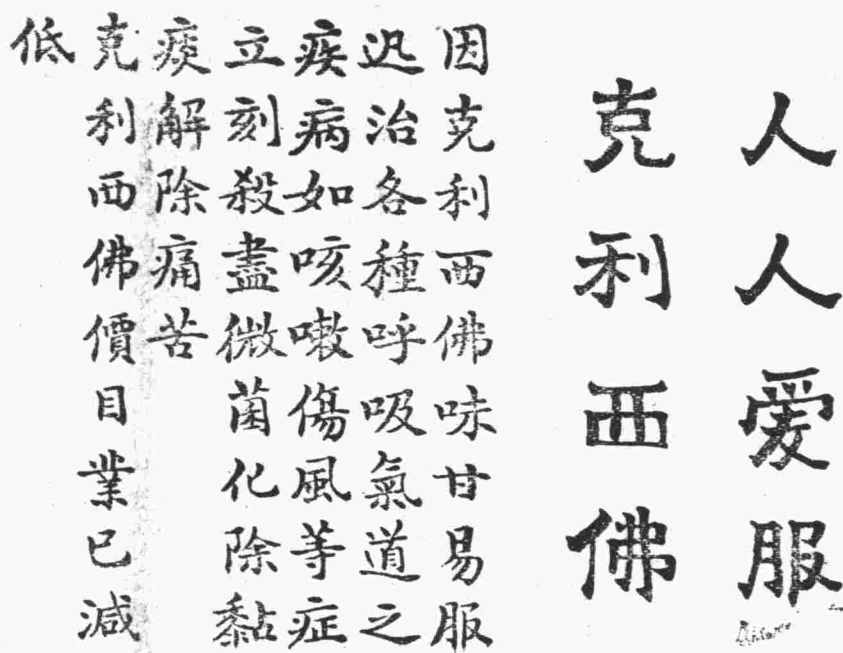 人人爱服
克利西佛
因克利西佛味甘易服
迅治各種呼吸氣道之
疾病如咳嗽傷風等症
立刻殺盡微菌化除黏
痰解除痛苦
克利西佛價目業已減
低